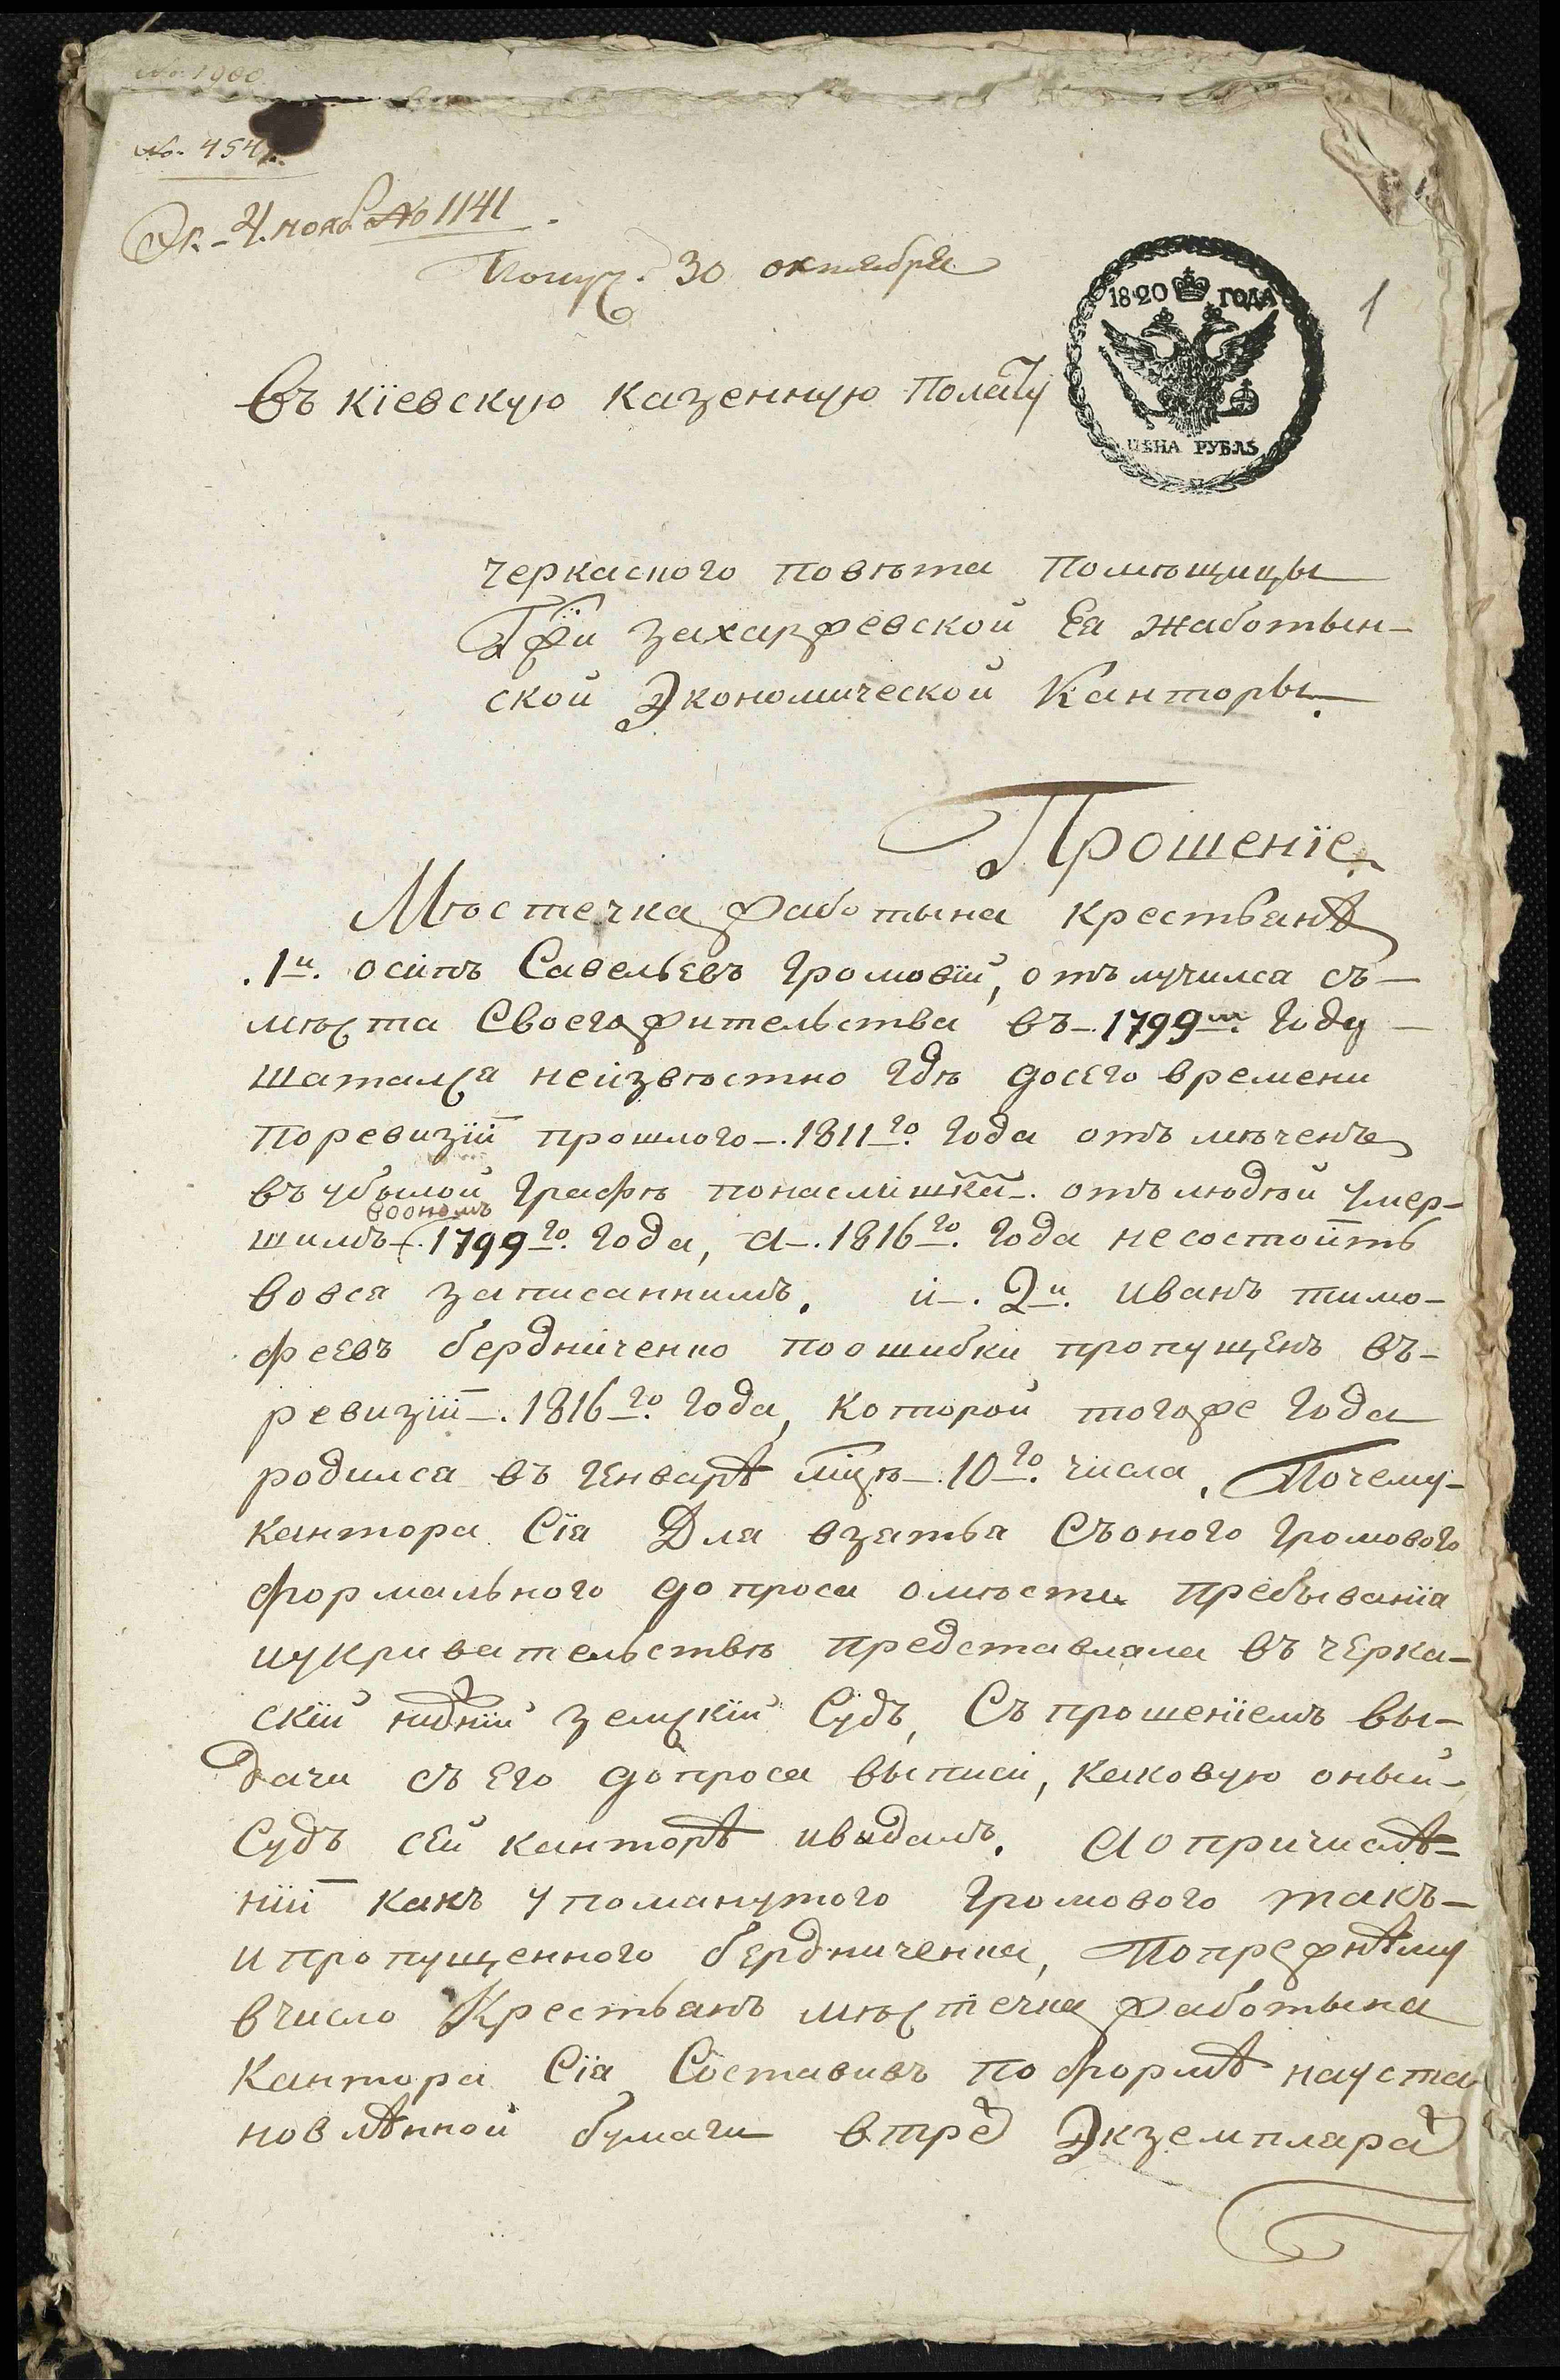 No. 1900.
No. 454
Эк. 21. нояб. No 1141
Получ. 30 октября
1820 ГОДА
ЦЕНА РУБЛЬ
1
Въ Кіевскую Казенную Полату
Черкаского повѣта помѣщицы
Гжи Захаржевской Ея Жаботын-
ской Экономической Канторы.
Прошеніе
Мѣстечка Жаботына крестьянѣ
.1й. осипъ Савельевъ Громовій, отълучился съ-
мѣста Своего жительства въ-.1799м. Году
шатался неизвѣстно гдѣ досего времени
поревизіи прошлого-.1811го. Года отъмѣченъ
въубылой графѣ понаслишкѣ. отълюдѣй умер-
воономъ
шимъ-.1799го. Года, а-.1816го. Года несостоитъ
вовся записаннимъ. и-.2й. Иванъ тимо-
феевъ бердниченко поошибки пропущенъ въ-
ревизіи-.1816го. Года, которой тогоже Года
родился въ Генварѣ мцѣ-.10го. числа. Почему-
кантора Сія Для взятья Съоного Громового
формального допроса омѣсти пребыванія
иукривательствѣ представляла въ черка-
скій нижній земскій Судъ, Съ прошеніемъ вы-
дачи съ его допроса выписи, каковую оный-
Судъ сей канторѣ ивидалъ. Аопричислѣ-
ніи какъ упомянутого Громового такъ-
ипропущенного бердниченка, Попрежнѣму
вчисло Крестьянъ мѣстечка Жаботына
Кантора Сія Составивъ по формѣ науста
новлѣнной бумаги втрех Экземплярах